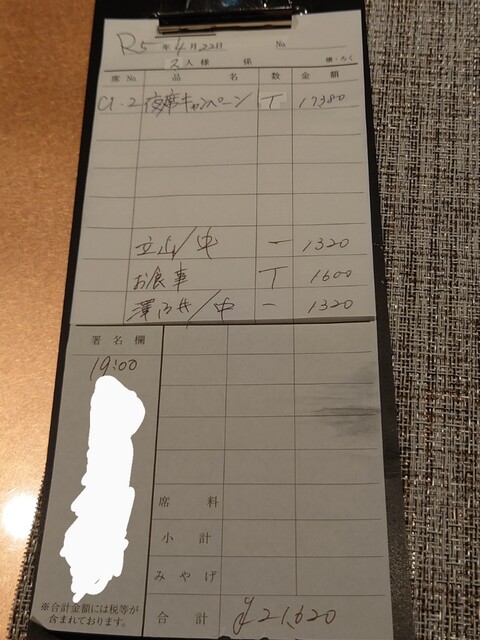 R5年4月22日 No
2人様 係 橋・ろく
席No. 品名 数 金額
C1・2 夜席キャンペーン T 17380
立山/中 一 1320
お食事 T 1600
澤乃井/中 一 1320
署名欄
19:00
席料
小計
みやげ
※合計金額には税等が
含まれております。
合計 ¥21,620